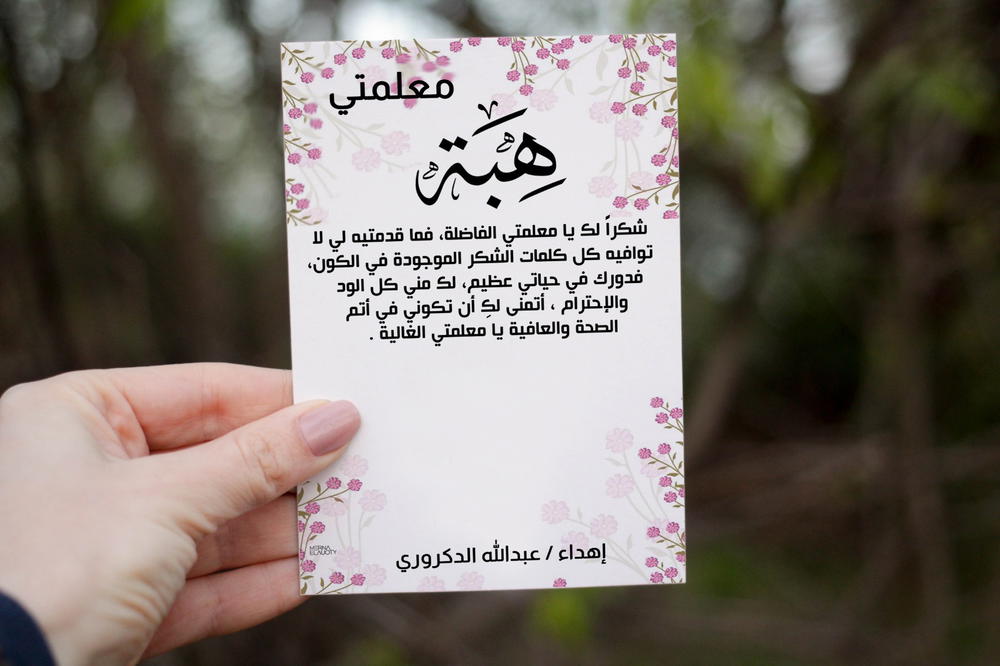 معلمتي
هِبَة
شكراً لك يا معلمتي الفاضلة، فما قدمتيه لي لا
توافيه كل كلمات الشكر الموجودة في الكون،
فدورك في حياتي عظيم، لك مني كل الود
والإحترام ، أتمنى لكِ أن تكوني في أتم
الصحة والعافية يا معلمتي الغالية .
إهداء / عبدالله الدكروري
MERNA
ELAUOTY